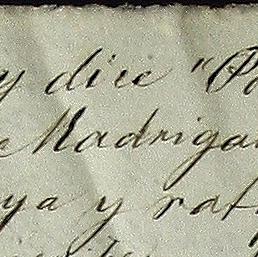 y dice "Po
Madrigal
ya y rat